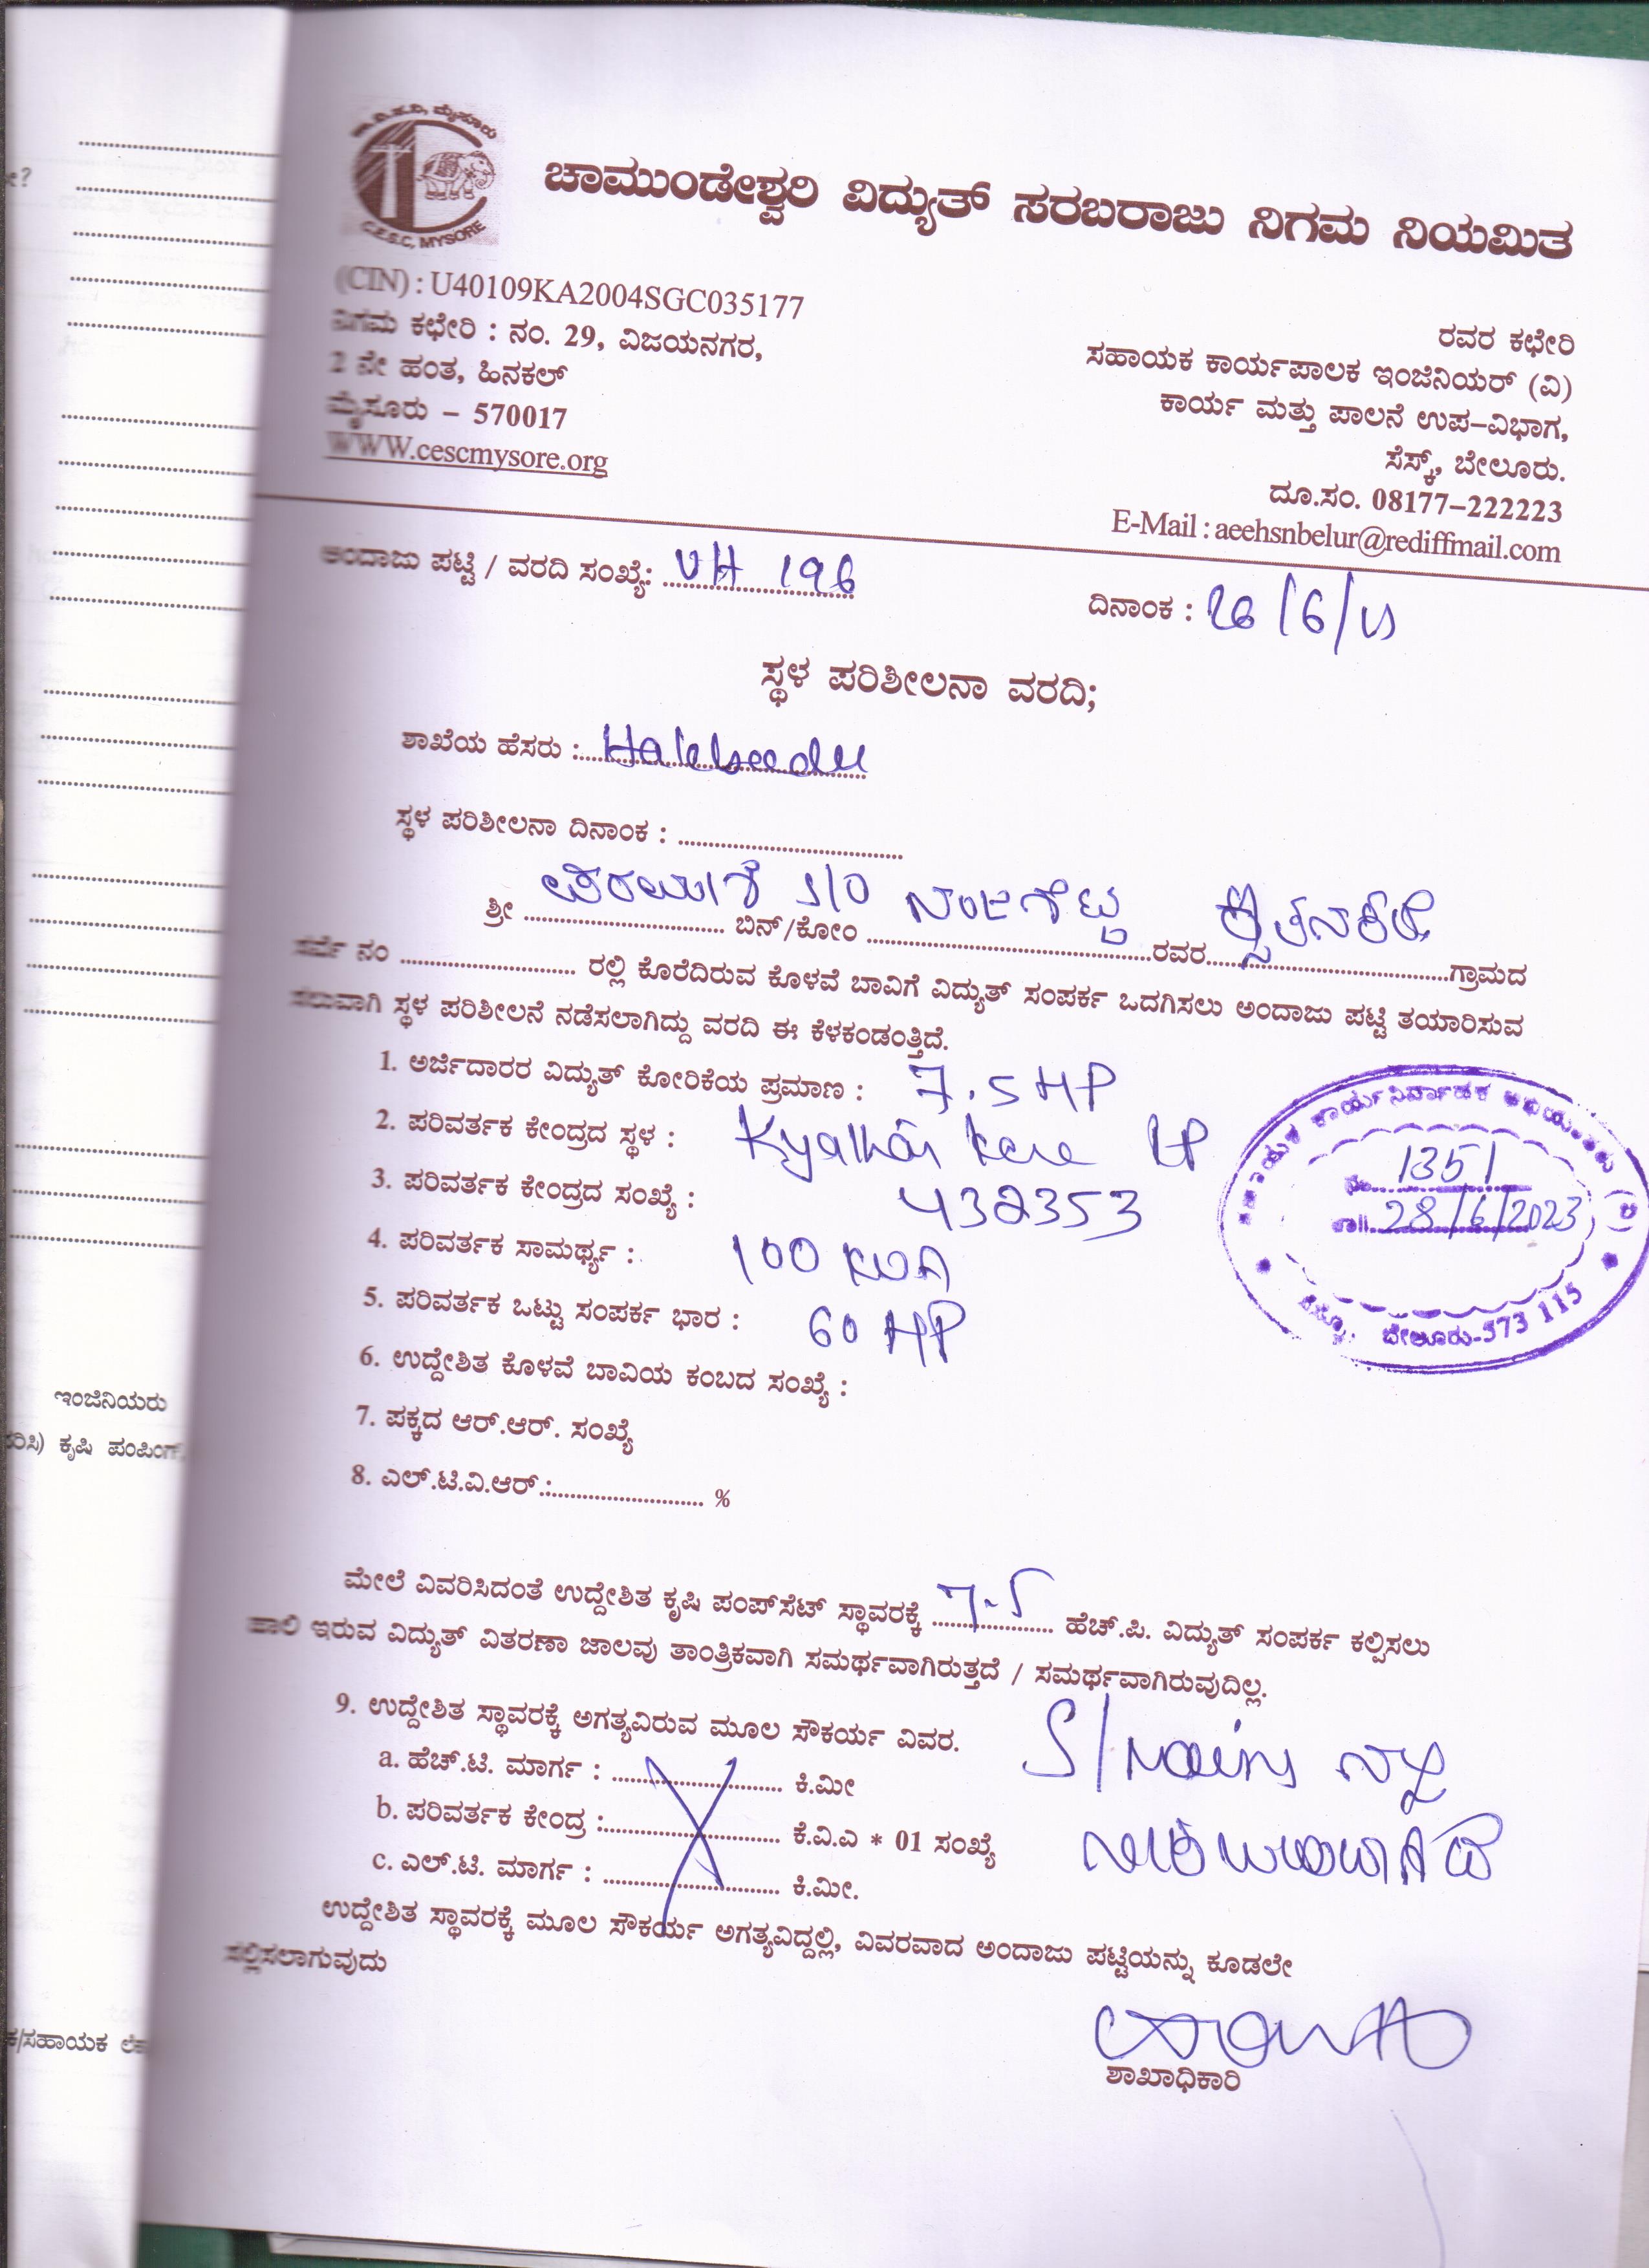 ಚಾಮುಂಡೇಶ್ವರಿ ವಿದ್ಯುತ್ ಸರಬರಾಜು ನಿಗಮ ನಿಯಮಿತ
C.E.S.C, MYSORE
(CIN) : U40109KA2004SGC035177
ನಿಗಮ ಕಛೇರಿ : ನಂ. 29, ವಿಜಯನಗರ,
2 ನೇ ಹಂತ, ಹಿನಕಲ್
ಮೈಸೂರು – 570017
WWW.cescmysore.org
ರವರ ಕಛೇರಿ
ಸಹಾಯಕ ಕಾರ್ಯಪಾಲಕ ಇಂಜಿನಿಯರ್ (ವಿ)
ಕಾರ್ಯ ಮತ್ತು ಪಾಲನೆ ಉಪ–ವಿಭಾಗ,
ಸೆಸ್ಕ್, ಬೇಲೂರು.
ದೂ.ಸಂ. 08177–222223
E-Mail : aeehsnbelur@rediffmail.com
ಅಂದಾಜು ಪಟ್ಟಿ / ವರದಿ ಸಂಖ್ಯೆ: UH 196
ದಿನಾಂಕ : 26/6/
ಸ್ಥಳ ಪರಿಶೀಲನಾ ವರದಿ;
ಶಾಖೆಯ ಹೆಸರು : Halebeedu
ಸ್ಥಳ ಪರಿಶೀಲನಾ ದಿನಾಂಕ :
ಶ್ರೀ S/O ಬಿನ್/ಕೋಂ ರವರ ಗ್ರಾಮದ
ಸರ್ವೆ ನಂ ರಲ್ಲಿ ಕೊರೆದಿರುವ ಕೊಳವೆ ಬಾವಿಗೆ ವಿದ್ಯುತ್ ಸಂಪರ್ಕ ಒದಗಿಸಲು ಅಂದಾಜು ಪಟ್ಟಿ ತಯಾರಿಸುವ
ಸಲುವಾಗಿ ಸ್ಥಳ ಪರಿಶೀಲನೆ ನಡೆಸಲಾಗಿದ್ದು ವರದಿ ಈ ಕೆಳಕಂಡಂತ್ತಿದೆ.
1. ಅರ್ಜಿದಾರರ ವಿದ್ಯುತ್ ಕೋರಿಕೆಯ ಪ್ರಮಾಣ : 7.5 HP
2. ಪರಿವರ್ತಕ ಕೇಂದ್ರದ ಸ್ಥಳ : kere
3. ಪರಿವರ್ತಕ ಕೇಂದ್ರದ ಸಂಖ್ಯೆ : 432353
4. ಪರಿವರ್ತಕ ಸಾಮರ್ಥ್ಯ : 100 KVA
5. ಪರಿವರ್ತಕ ಒಟ್ಟು ಸಂಪರ್ಕ ಭಾರ : 60 HP
6. ಉದ್ದೇಶಿತ ಕೊಳವೆ ಬಾವಿಯ ಕಂಬದ ಸಂಖ್ಯೆ :
7. ಪಕ್ಕದ ಆರ್.ಆರ್. ಸಂಖ್ಯೆ
8. ಎಲ್.ಟಿ.ವಿ.ಆರ್.: %
ಸಹಾಯಕ ಕಾರ್ಯನಿರ್ವಾಹಕ
1351
28/6/2023
ಬೇಲೂರು-573 115
ಮೇಲೆ ವಿವರಿಸಿದಂತೆ ಉದ್ದೇಶಿತ ಕೃಷಿ ಪಂಪ್‌ಸೆಟ್ ಸ್ಥಾವರಕ್ಕೆ 7.5 ಹೆಚ್.ಪಿ. ವಿದ್ಯುತ್ ಸಂಪರ್ಕ ಕಲ್ಪಿಸಲು
ಹಾಲಿ ಇರುವ ವಿದ್ಯುತ್ ವಿತರಣಾ ಜಾಲವು ತಾಂತ್ರಿಕವಾಗಿ ಸಮರ್ಥವಾಗಿರುತ್ತದೆ / ಸಮರ್ಥವಾಗಿರುವುದಿಲ್ಲ.
9. ಉದ್ದೇಶಿತ ಸ್ಥಾವರಕ್ಕೆ ಅಗತ್ಯವಿರುವ ಮೂಲ ಸೌಕರ್ಯ ವಿವರ.
a. ಹೆಚ್.ಟಿ. ಮಾರ್ಗ : ಕಿ.ಮೀ
b. ಪರಿವರ್ತಕ ಕೇಂದ್ರ : ಕೆ.ವಿ.ಎ * 01 ಸಂಖ್ಯೆ
c. ಎಲ್.ಟಿ. ಮಾರ್ಗ : ಕಿ.ಮೀ.
ಉದ್ದೇಶಿತ ಸ್ಥಾವರಕ್ಕೆ ಮೂಲ ಸೌಕರ್ಯ ಅಗತ್ಯವಿದ್ದಲ್ಲಿ, ವಿವರವಾದ ಅಂದಾಜು ಪಟ್ಟಿಯನ್ನು ಕೂಡಲೇ
ಸಲ್ಲಿಸಲಾಗುವುದು
ಶಾಖಾಧಿಕಾರಿ
ಇಂಜಿನಿಯರು
ಕೃಷಿ ಪಂಪಿಂಗ್